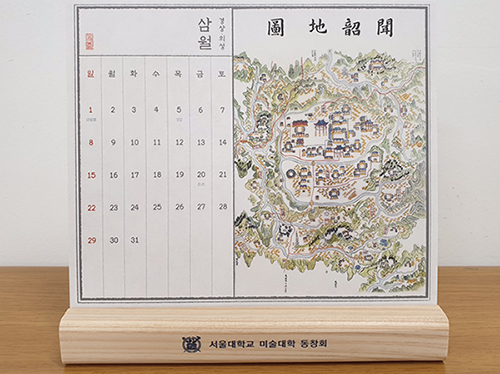 경상 의성
삼월
聞韶地圖
일 월 화 수 목 금 토
1 2 3 4 5 6 7
8 9 10 11 12 13 14
15 16 17 18 19 20 21
22 23 24 25 26 27 28
29 30 31
서울대학교 미술대학 동창회